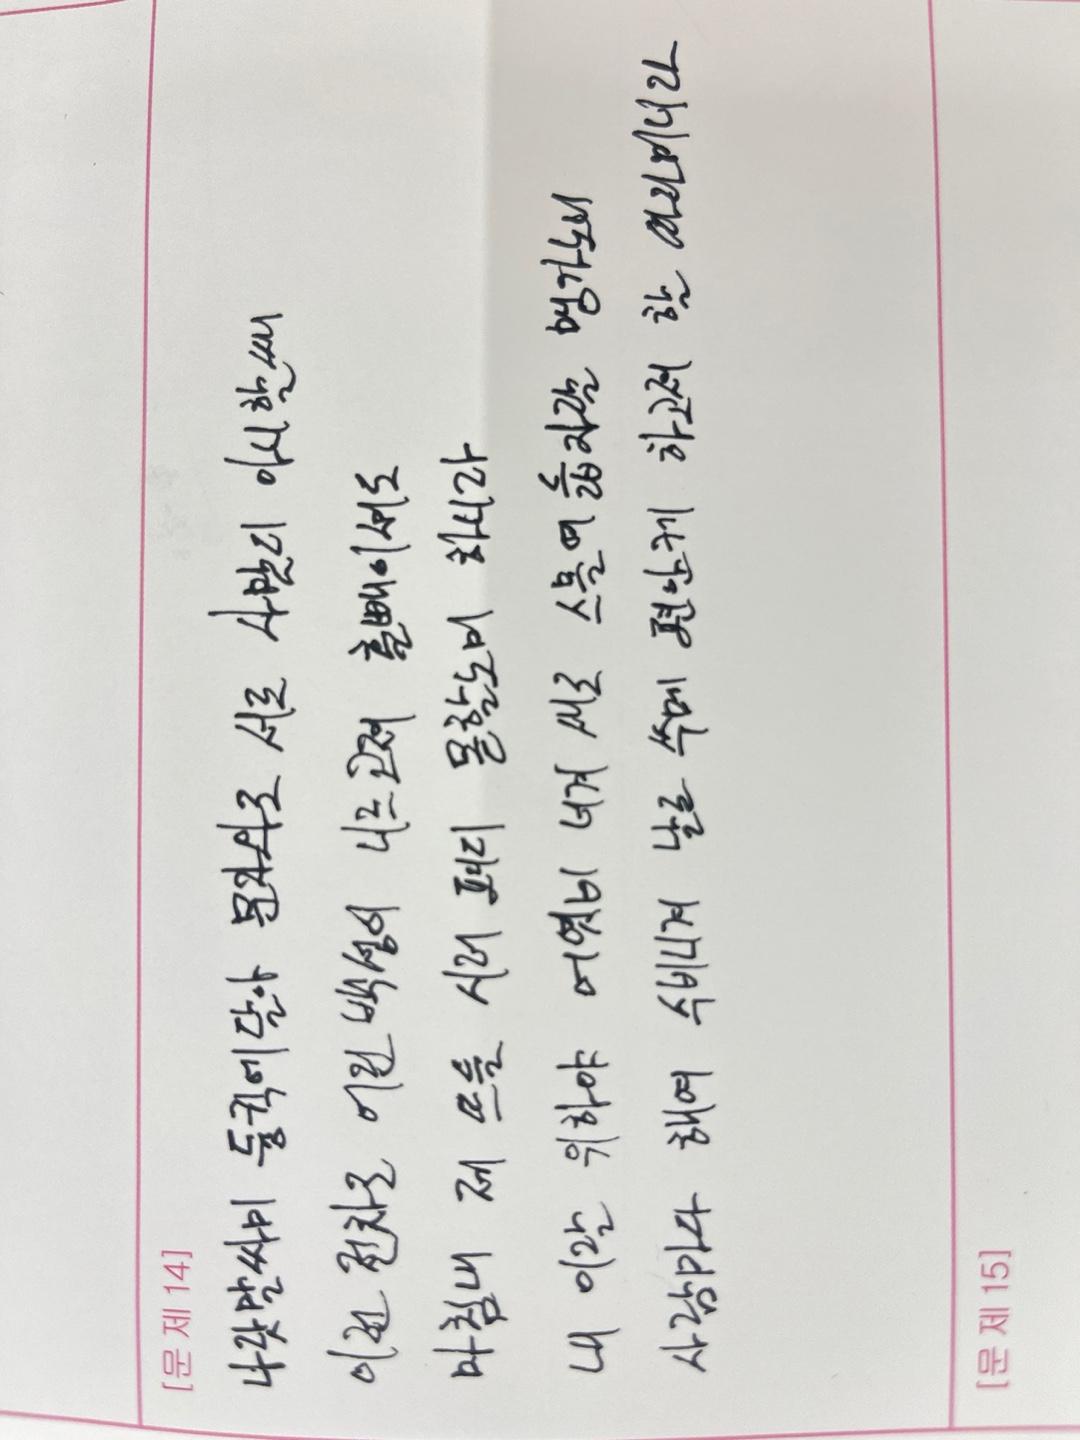 [문제 14]
나랏말싸미 듕귁에 달아 문자와로 서로 사맏디 아니할쎄
이런 젼차로 어린 백셩이 니르고져 홀빼이셔도
마침내 제 뜨들 시러 펴디 몯할노미 하니라
내 이랄 위하야 어엿비 너겨 새로 스믈여듧자랄 맹가노니
사람마다 해여 수비니겨 날로 쑤메 편안케 하고져 할 따라미니라
[문제 15]